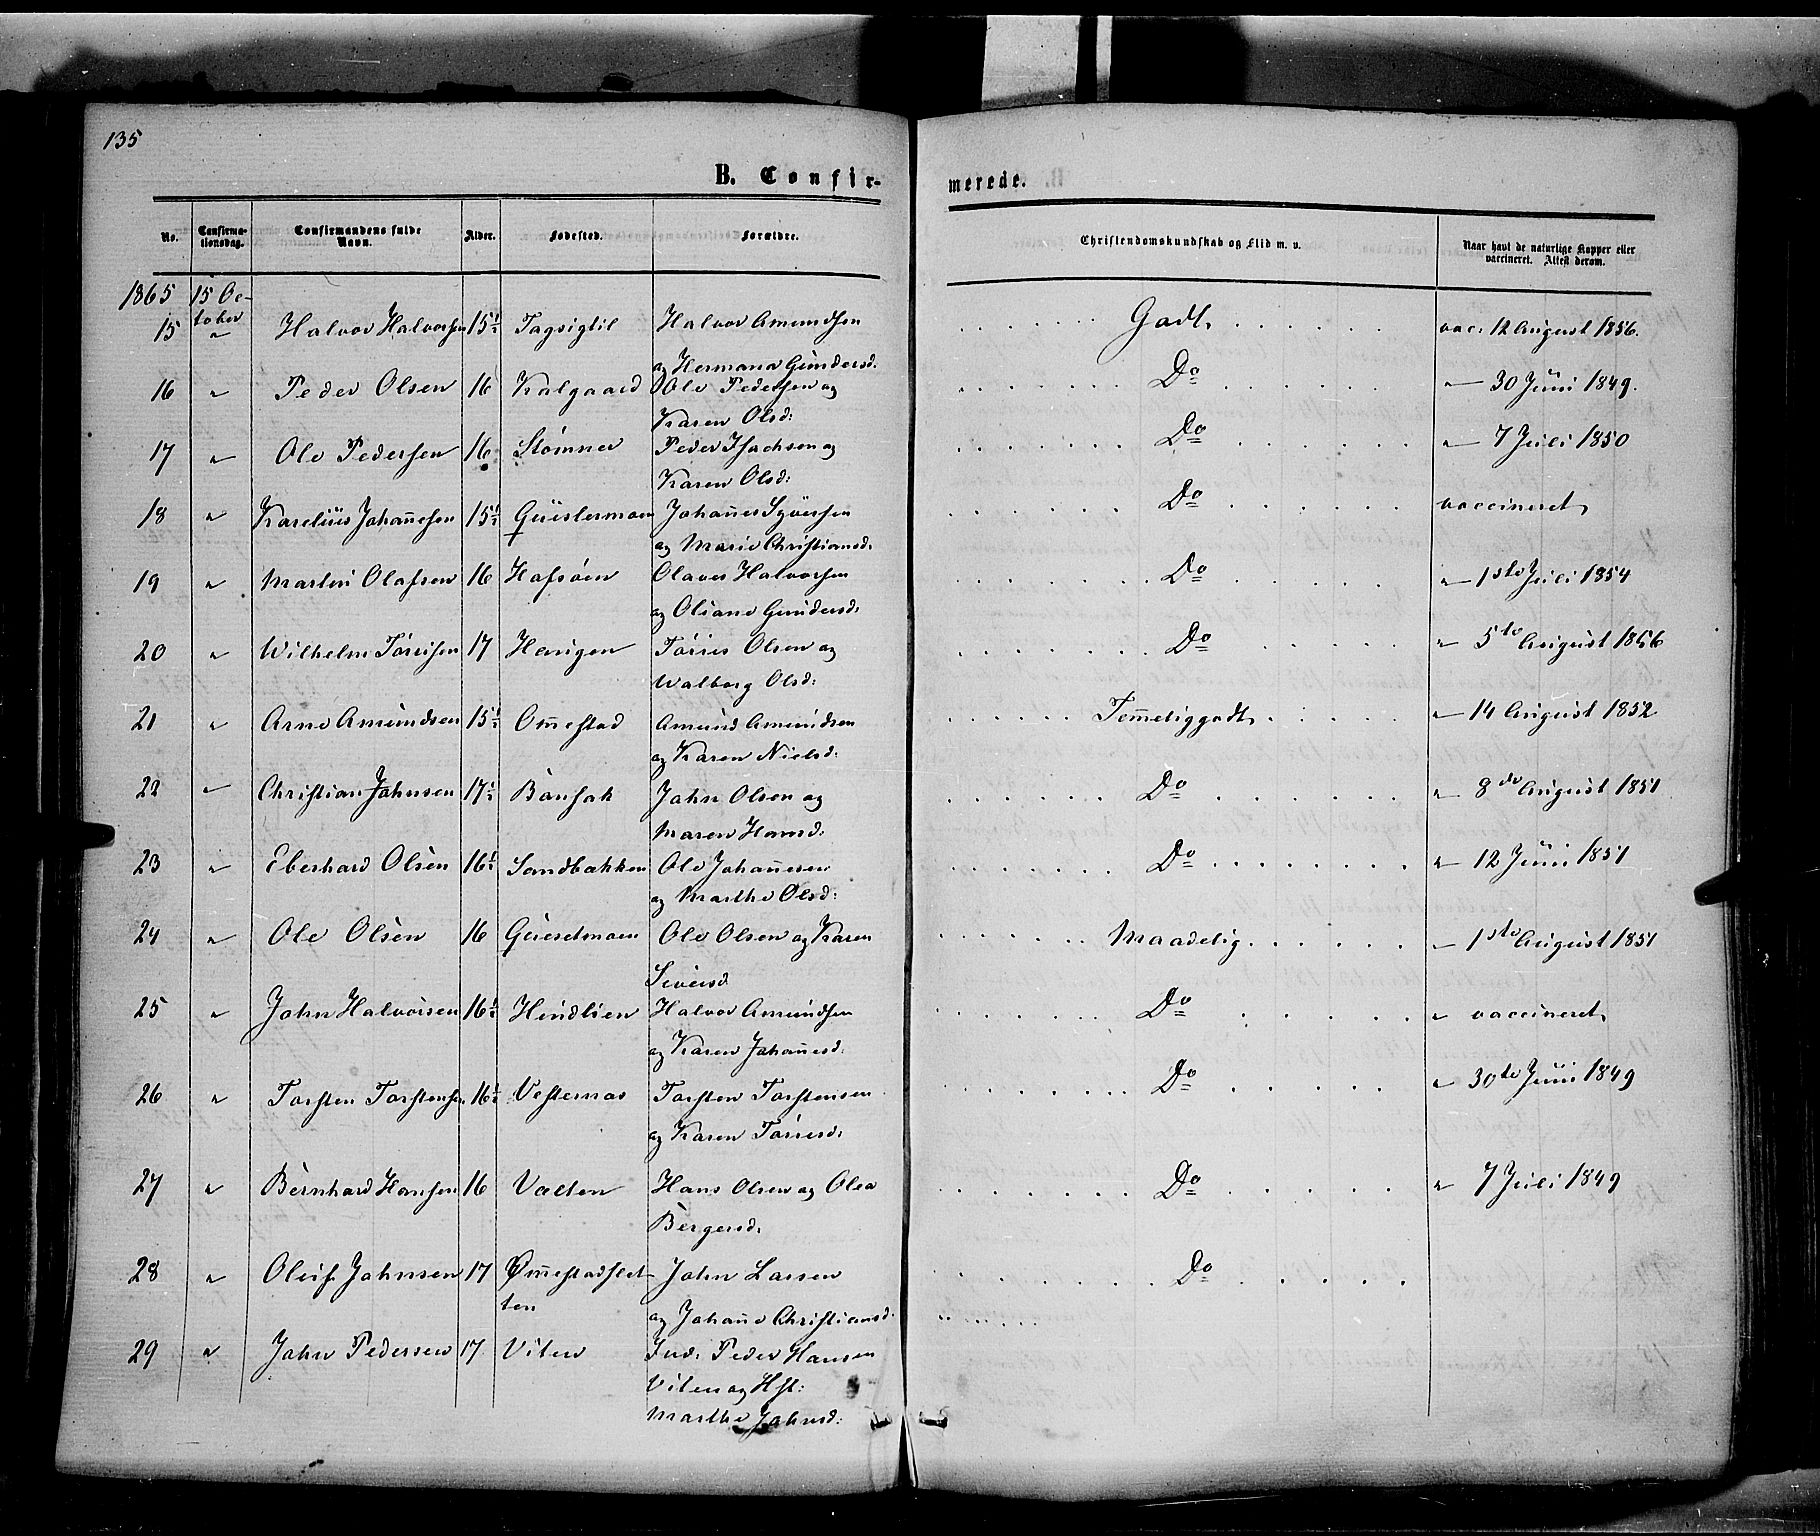 135
B. Confir-
merede.
No. Confirma-tionsdag. Confirmandens fulde Navn. Alder. Fødested. Forældre. Christendomskundskab og Flid m. v. Naar havt de naturlige Kopper eller vaccineret. Attest derom.
1865 15 Oc-
tober
15 " Halvor Halvorsen 15½ Tagsigtil Halvor Amundsen Godt. vac. 12 August 1856.
og Hermana Gundersd.
16 " Peder Olsen 16 Kalgaard Ole Pedersen og Do " — 30 Juni 1849.
Karen Olsd:
17 " Ole Pedersen 16 Stømner Peder Isachsen og Do " — 7 Juli 1850
Karen Olsd:
18 " Karelius Johannesen 15½ Johannes Syversen Do vaccineret
og Marie Christiansd.
19 " Martin Olafsen 16 Hafsøen Olaves Halvorsen Do " — 1ste Juli 1854
og Oliane Gundersd.
20 " Wilhelm Törrisen 17 Haugen Törris Olsen og Do " — 5te August 1856
Walborg Olsd:
21 " Arne Amundsen 15½ Omestad Amund Amundsen Temmeliggodt " — 14 August 1852
og Karen Nielsd.
22 " Christian Johnsen 17½ Bausak John Olsen og Do " — 8de August 1851
Maren Hansd.
23 " Eberhard Olsen 16½ Sandbakken Ole Johannesen Do " — 12 Juni 1851
og Marthe Olsd:
24 " Ole Olsen 16 Ole Olsen og Karen Maadelig " — 1ste August 1851
Siversd
25 " John Halvorsen 16½ Hindlien Halvor Amundsen Do " vaccineret
og Karen Johannesd.
26 " Torsten Torstensen 16½ Vesternas Torsten Torstensen Do " — 30te Juni 1849
og Karen Törresd.
27 " Bernhard Hansen 16 Valten Hans Olsen og Olea Do " 7 Juli 1849
Bergersd.
28 " Oluf Johnsen 17 Ømestadslet- John Larsen Do
ten og Johanne Christiansd.
29 " John Pedersen 17 Viten Ind. Peder Hansen
Viten og Hst:
Marthe Johnsd: